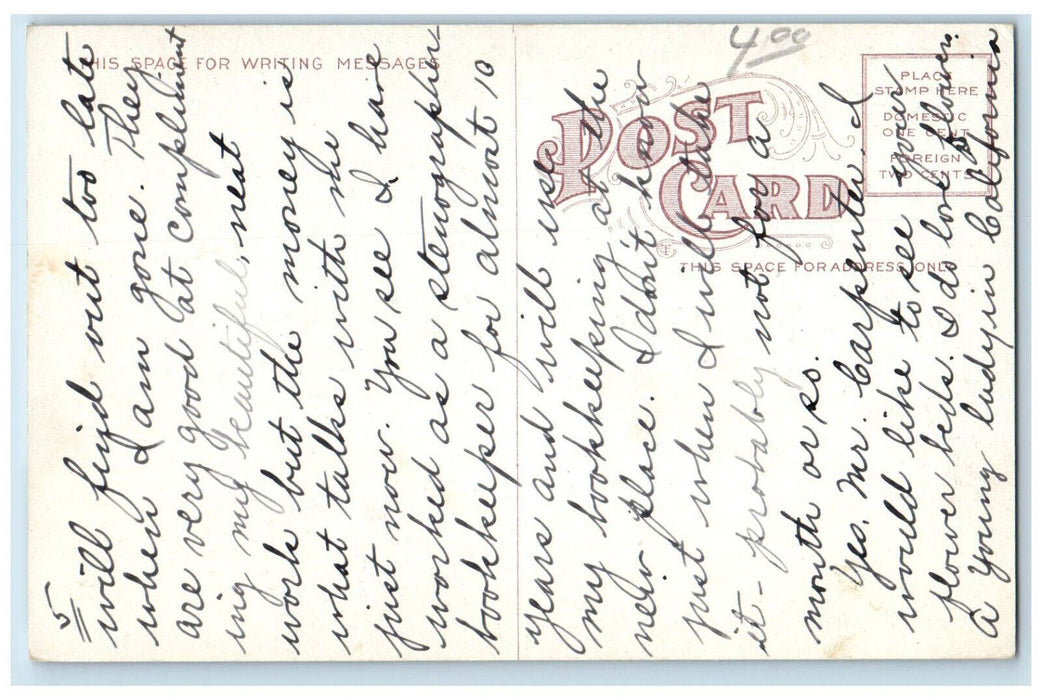 5
will find out too late
when I am gone. They
are very good at compliment
ing my beautiful, neat
work but the money is
what talks with me
just now. You see I have
worked as a stenographer
bookkeeper for almost 10
years and will use
my bookkeeping at the
new place. I don't know
just when I will take
it - probably not for a
month or so.
Yes, Mr. Carpenter I
would like to see your
flower beds. I do love flowers.
A young lady in California
THIS SPACE FOR WRITING MESSAGES
4.00
POST
CARD
THIS SPACE FOR ADDRESS ONLY
PLACE
STAMP HERE
DOMESTIC
ONE CENT
FOREIGN
TWO CENTS